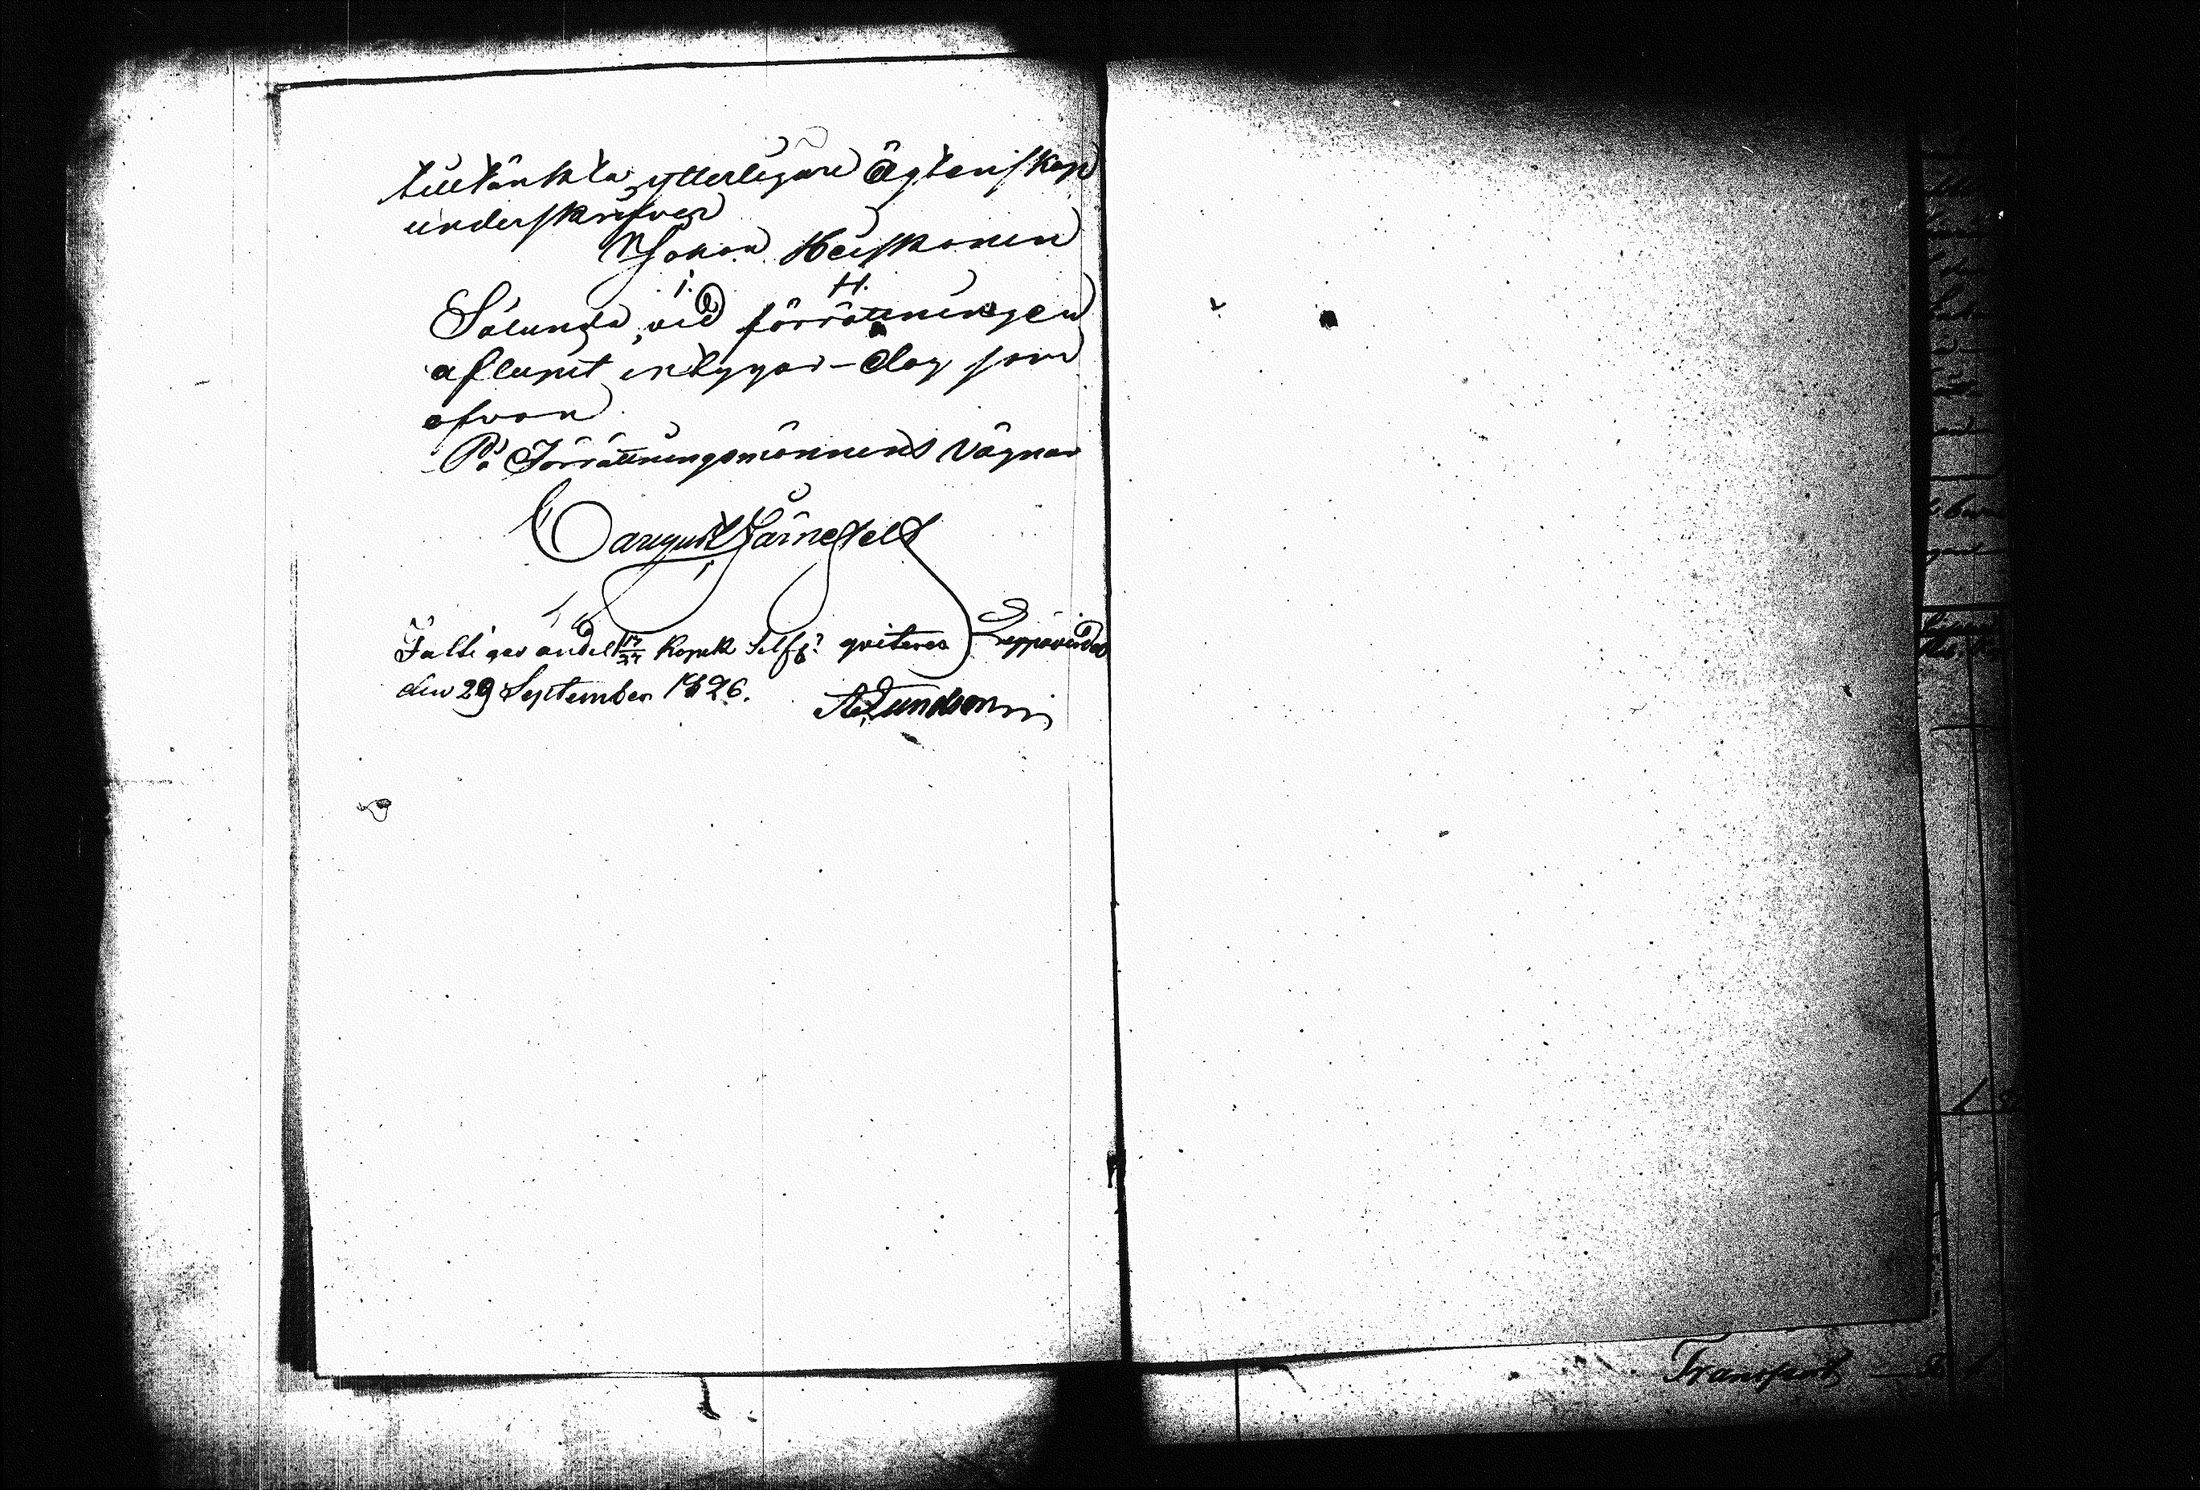 tilltänkta ytterligare Ägtenskap
underskrifver
Johan Heiskonen
I. H.
Sålunda vid förrättningen
aflupit intygar - Dag som
ofvan
På Förrättningsmännens Vägnar
August Järnefelt
Fattigas andel 17/24 Kopek Silfr qvitteras Leppävirda
den 29 September 1826.
Transport